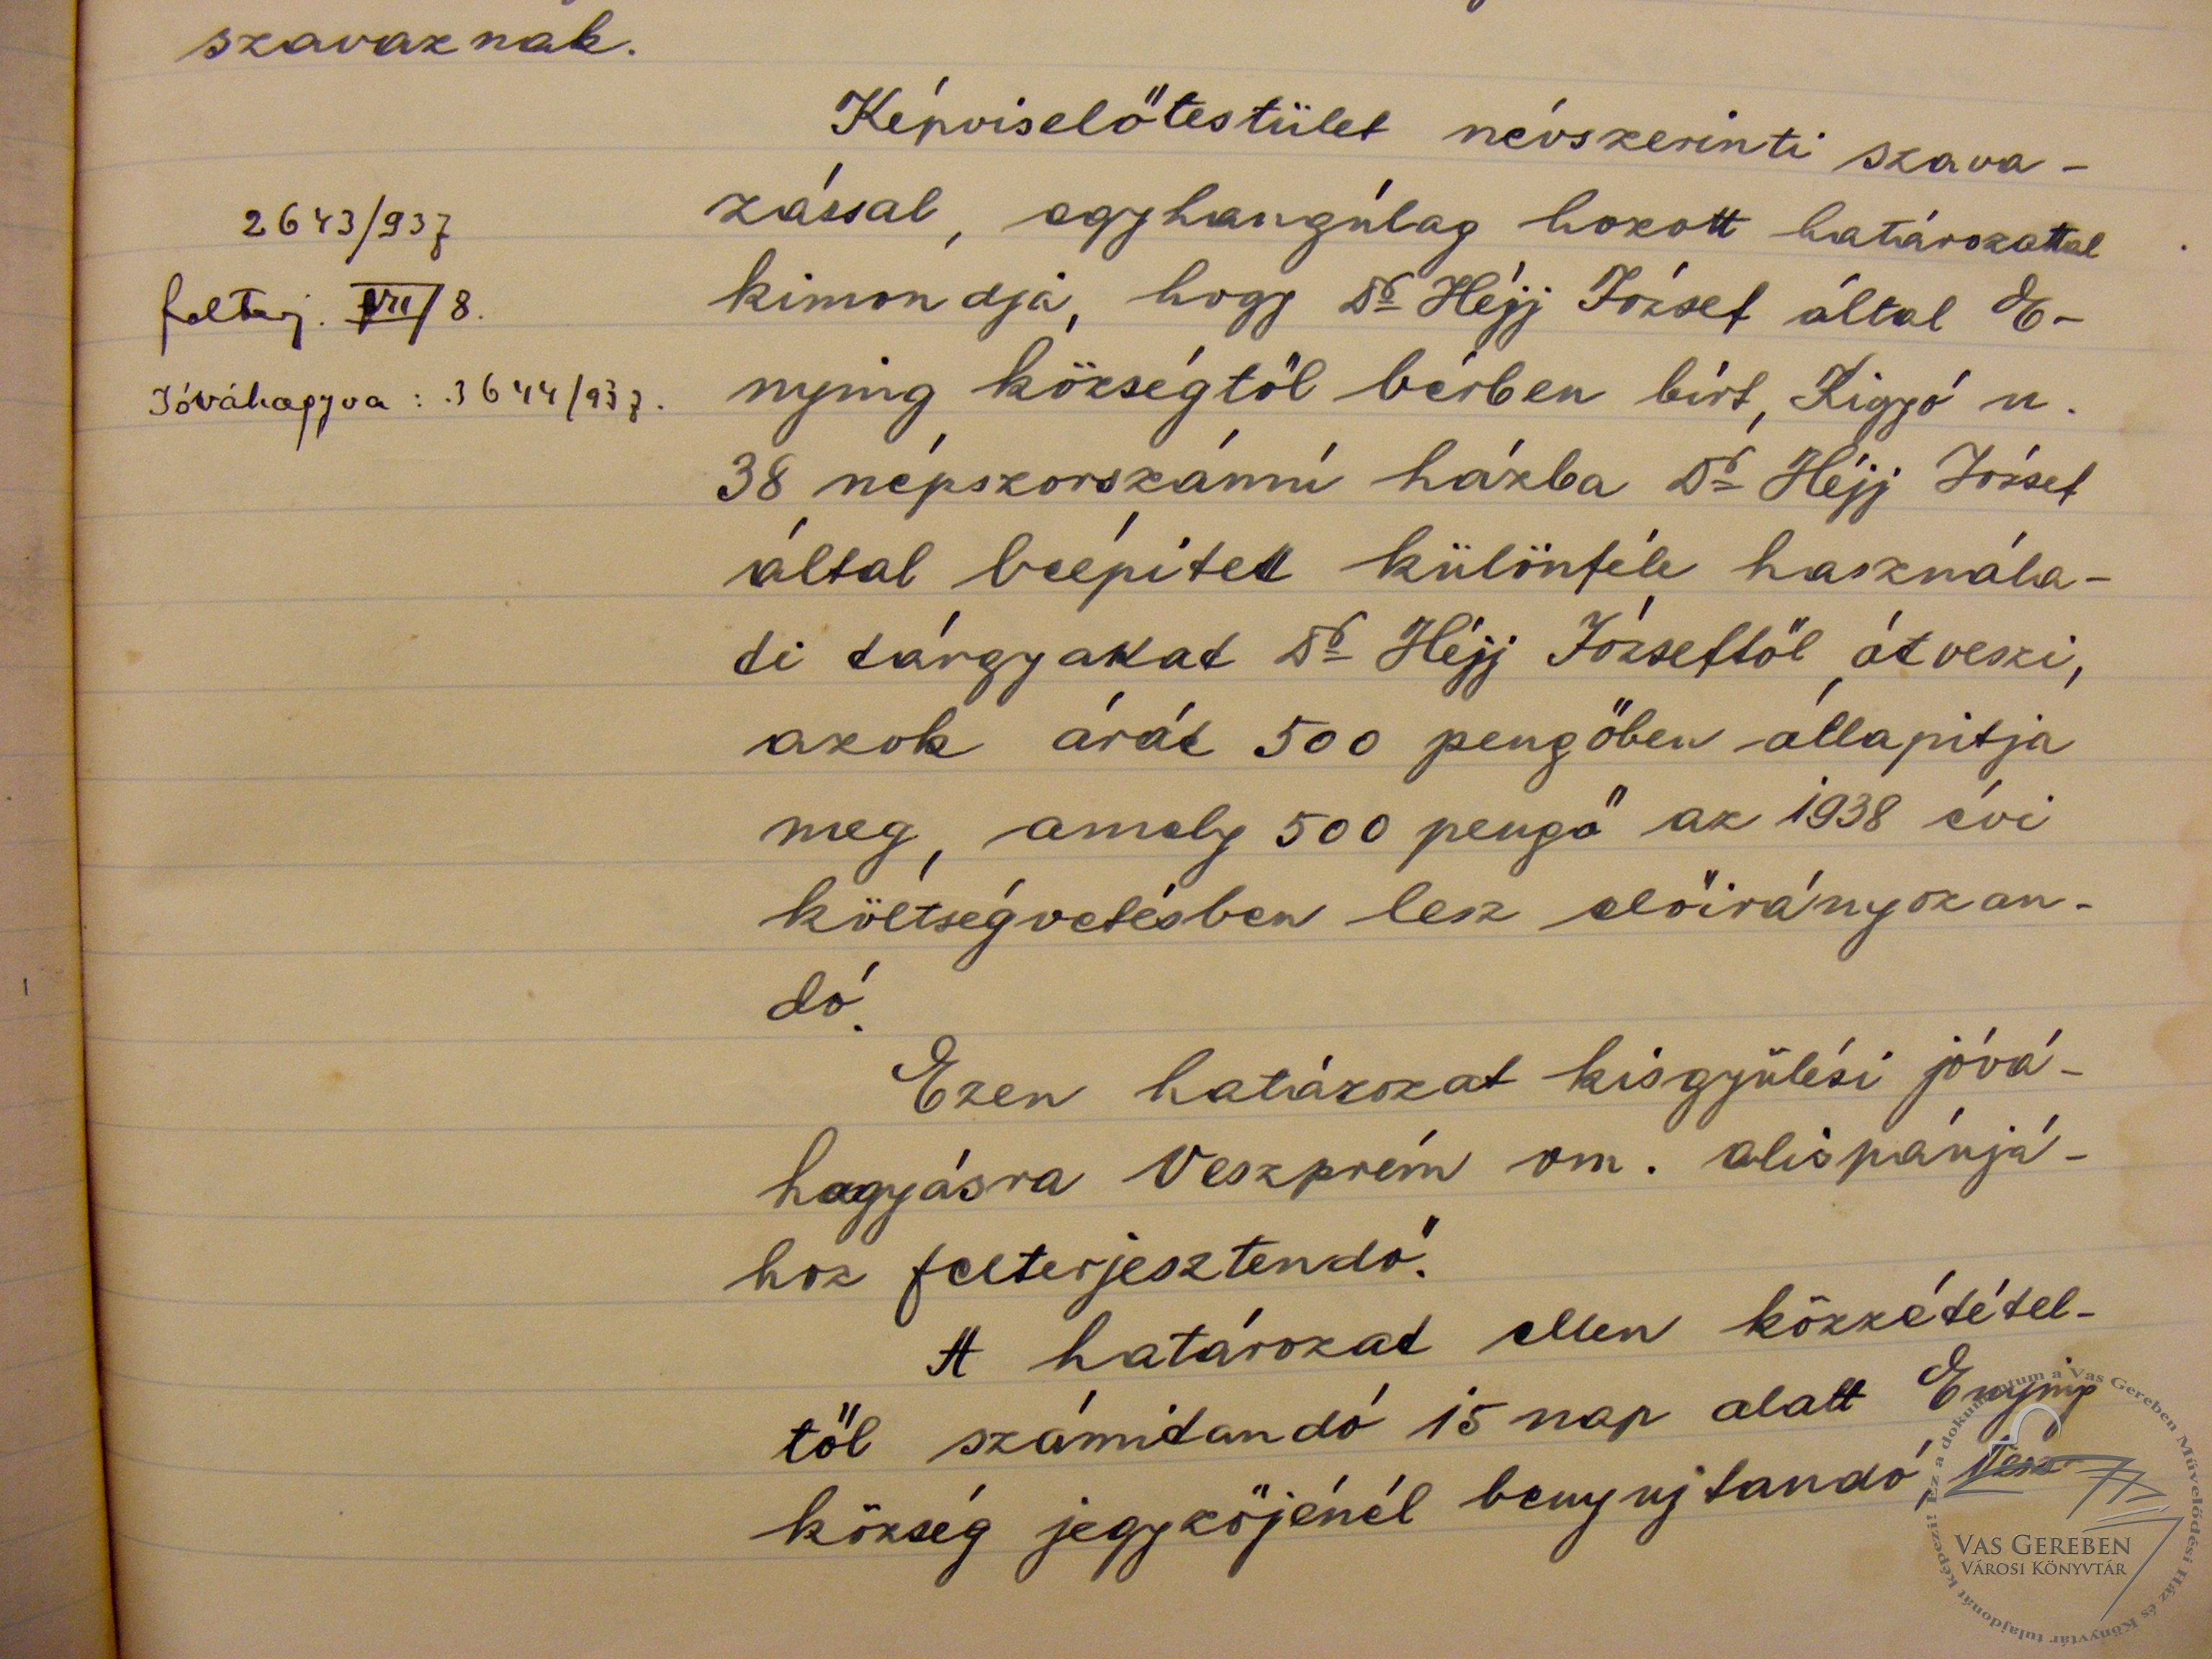 szavaznak.
Képviselőtestület névszerinti szava-
zással, egyhangúlag hozott határozattal
kimondja, hogy Dr Héjj József által E-
nying községtől bérben bírt, Kigyó u.
38 népszorszámú házba Dr Héjj József
által beépített különféle használa-
ti tárgyakat Dr Héjj Józseftől átveszi,
azok árát 500 pengőben állapitja
meg, amely 500 pengő az 1938 évi
költségvetésben lesz előirányozan-
dó.
Ezen határozat kisgyűlési jóvá-
hagyásra Veszprém vm. alispánjá-
hoz felterjesztendő.
A határozat ellen közzététel-
től számitandó 15 nap alatt Enying
község jegyzőjénél benyujtandó
2643/937
felterj. VII/8.
Jóváhagyva: 3644/937.
Ez a dokumentum a Vas Gereben Művelődési Ház és Könyvtár tulajdonát képezi!
VAS GEREBEN
VÁROSI KÖNYVTÁR